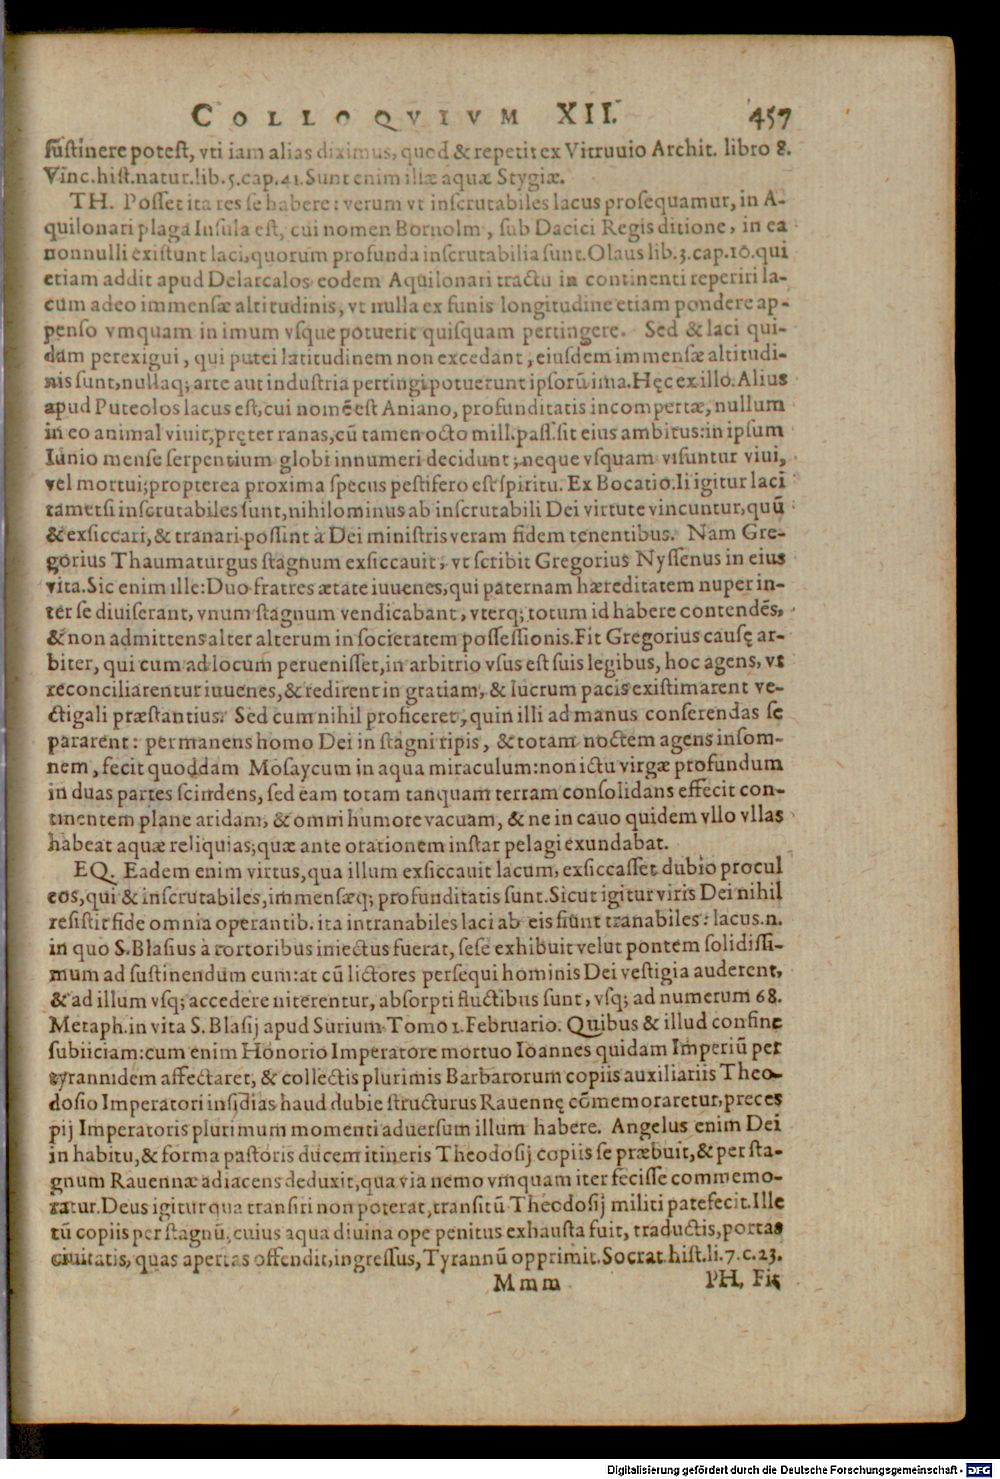 COLLOQVIVM XII. 457
ſuſtinere poteſt, vti iam alias diximus, quod & repetit ex Vitruuio Archit. libro 8.
Vinc. hiſt. natur. lib. 5. cap. 41. Sunt enim illæ aquæ Stygiæ.
TH. Poſſet ita res ſe habere: verum vt inſcrutabiles lacus proſequamur, in A-
quilonari plaga Inſula eſt, cui nomen Bornolm, ſub Dacici Regis ditione, in ea
nonnulli exiſtunt laci, quorum profunda inſcrutabilia ſunt. Olaus lib. 3. cap. 10. qui
etiam addit apud Delarcalos eodem Aquilonari tractu in continenti reperiri la-
cum adeo immenſæ altitudinis, vt nulla ex funis longitudine etiam pondere ap-
penſo vmquam in imum vſque potuerit quiſquam pertingere. Sed & laci qui-
dam perexigui, qui putei latitudinem non excedant, eiuſdem immenſæ altitudi-
nis ſunt, nullaq; arte aut induſtria pertingi potuerunt ipſorũ ima. Hęc ex illo. Alius
apud Puteolos lacus eſt, cui nomẽ eſt Aniano, profunditatis incompertæ, nullum
in eo animal viuit, pręter ranas, cũ tamen octo mill. paſſ. ſit eius ambitus: in ipſum
Iunio menſe ſerpentium globi innumeri decidunt; neque vſquam viſuntur viui,
vel mortui; propterea proxima ſpecus peſtifero eſt ſpiritu. Ex Bocatio. Ii igitur laci
tametſi inſcrutabiles ſunt, nihilominus ab inſcrutabili Dei virtute vincuntur, quũ
& exſiccari, & tranari poſſint à Dei miniſtris veram fidem tenentibus. Nam Gre-
gorius Thaumaturgus ſtagnum exſiccauit, vt ſcribit Gregorius Nyſſenus in eius
vita. Sic enim ille: Duo fratres ætate iuuenes, qui paternam hæreditatem nuper in-
ter ſe diuiſerant, vnum ſtagnum vendicabant, vterq; totum id habere contendẽs,
& non admittens alter alterum in ſocietatem poſſeſſionis. Fit Gregorius cauſę ar-
biter, qui cum ad locum perueniſſet, in arbitrio vſus eſt ſuis legibus, hoc agens, vt
reconciliarentur iuuenes, & redirent in gratiam, & lucrum pacis exiſtimarent ve-
ctigali præſtantius. Sed cum nihil proficeret, quin illi ad manus conferendas ſe
pararent: permanens homo Dei in ſtagni ripis, & totam noctem agens inſom-
nem, fecit quoddam Moſaycum in aqua miraculum: non ictu virgæ profundum
in duas partes ſcindens, ſed eam totam tanquam terram conſolidans effecit con-
tinentem plane aridam, & omni humore vacuam, & ne in cauo quidem vllo vllas
habeat aquæ reliquias; quæ ante orationem inſtar pelagi exundabat.
EQ. Eadem enim virtus, qua illum exſiccauit lacum, exſiccaſſet dubio procul
eos, qui & inſcrutabiles, immenſæq; profunditatis ſunt. Sicut igitur viris Dei nihil
reſiſtit fide omnia operantib. ita intranabiles laci ab eis fiunt tranabiles: lacus. n.
in quo S. Blaſius à tortoribus iniectus fuerat, ſeſe exhibuit velut pontem ſolidiſſi-
mum ad ſuſtinendum eum: at cũ lictores perſequi hominis Dei veſtigia auderent,
& ad illum vſq; accedere niterentur, abſorpti fluctibus ſunt, vſq; ad numerum 68.
Metaph. in vita S. Blaſij apud Surium Tomo 1. Februario. Quibus & illud confine
ſubiiciam: cum enim Honorio Imperatore mortuo Ioannes quidam Imperiũ per
tyrannidem affectaret, & collectis plurimis Barbarorum copiis auxiliariis Theo-
doſio Imperatori inſidias haud dubie ſtructurus Rauennę cõmemoraretur, preces
pij Imperatoris plurimum momenti aduerſum illum habere. Angelus enim Dei
in habitu, & forma paſtoris ducem itineris Theodoſij copiis ſe præbuit, & per ſta-
gnum Rauennæ adiacens deduxit, qua via nemo vmquam iter feciſſe commemo-
ratur. Deus igitur qua tranſiri non poterat, tranſitũ Theodoſij militi patefecit. Ille
tũ copiis per ſtagnũ, cuius aqua diuina ope penitus exhauſta fuit, traductis, portas
ciuitatis, quas apertas offendit, ingreſſus, Tyrannũ opprimit. Socrat. hiſt. li. 7. c. 23.
Mmm PH. Fit
Digitalisierung gefördert durch die Deutsche Forschungsgemeinschaft - DFG